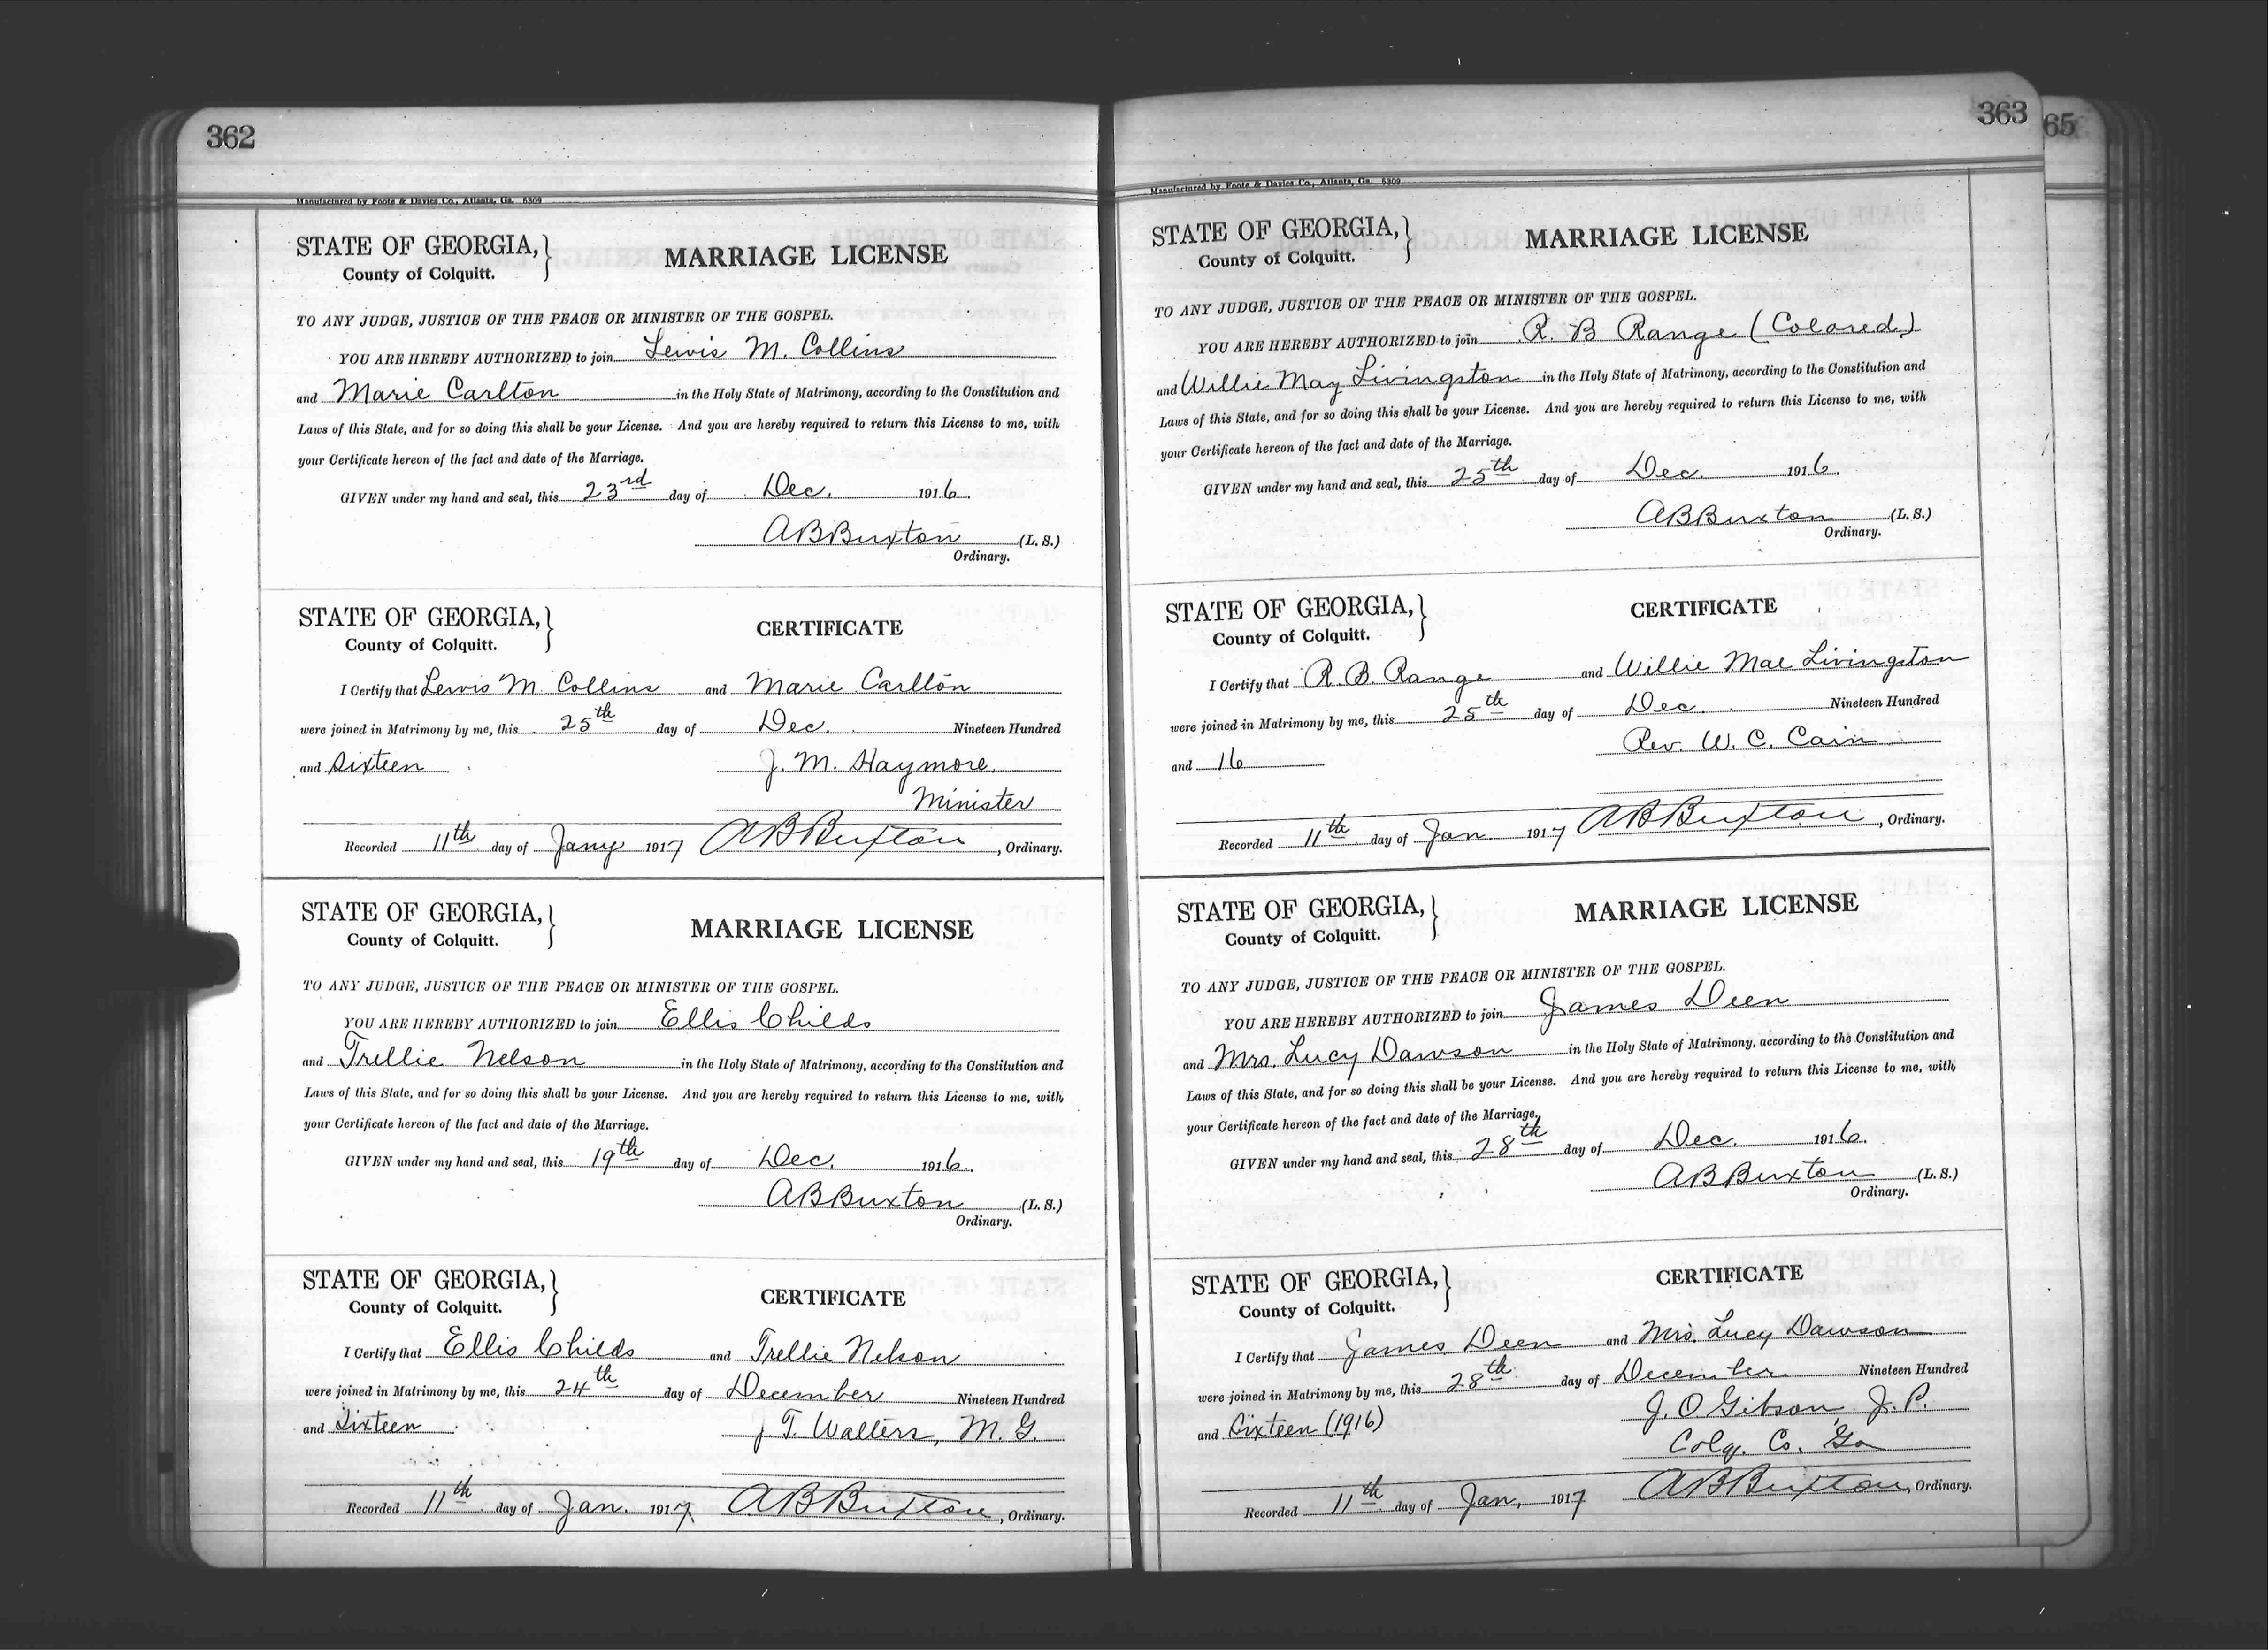 362
Manufactured by Foote & Davies Co., Atlanta, Ga. 5309
STATE OF GEORGIA,
County of Colquitt.
MARRIAGE LICENSE
TO ANY JUDGE, JUSTICE OF THE PEACE OR MINISTER OF THE GOSPEL.
YOU ARE HEREBY AUTHORIZED to join Lewis M. Collins
and Marie Carlton in the Holy State of Matrimony, according to the Constitution and
Laws of this State, and for so doing this shall be your License. And you are hereby required to return this License to me, with
your Certificate hereon of the fact and date of the Marriage.
GIVEN under my hand and seal, this 23rd day of Dec. 1916.
A B Buxton (L. S.)
Ordinary.
STATE OF GEORGIA,
County of Colquitt.
CERTIFICATE
I Certify that Lewis M. Collins and Marie Carlton
were joined in Matrimony by me, this 25th day of Dec. Nineteen Hundred
and Sixteen J. M. Haymore,
Minister
Recorded 11th day of Jany 1917 A B Buxton, Ordinary.
STATE OF GEORGIA,
County of Colquitt.
MARRIAGE LICENSE
TO ANY JUDGE, JUSTICE OF THE PEACE OR MINISTER OF THE GOSPEL.
YOU ARE HEREBY AUTHORIZED to join Ellis Childs
and Trellie Nelson in the Holy State of Matrimony, according to the Constitution and
Laws of this State, and for so doing this shall be your License. And you are hereby required to return this License to me, with,
your Certificate hereon of the fact and date of the Marriage.
GIVEN under my hand and seal, this 19th day of Dec. 1916.
A B Buxton (L. S.)
Ordinary.
STATE OF GEORGIA,
County of Colquitt.
CERTIFICATE
I Certify that Ellis Childs and Trellie Nelson
were joined in Matrimony by me, this 24th day of December Nineteen Hundred
and Sixteen J. T. Walters, M. G.
Recorded 11th day of Jan. 1917. A B Buxton, Ordinary.
363
65
Manufactured by Foote & Davies Co., Atlanta, Ga. 5309
STATE OF GEORGIA,
County of Colquitt.
MARRIAGE LICENSE
TO ANY JUDGE, JUSTICE OF THE PEACE OR MINISTER OF THE GOSPEL.
YOU ARE HEREBY AUTHORIZED to join R. B Range (Colored)
and Willie May Livingston in the Holy State of Matrimony, according to the Constitution and
Laws of this State, and for so doing this shall be your License. And you are hereby required to return this License to me, with
your Certificate hereon of the fact and date of the Marriage.
GIVEN under my hand and seal, this 25th day of Dec. 1916.
A B Buxton (L. S.)
Ordinary.
STATE OF GEORGIA,
County of Colquitt.
CERTIFICATE
I Certify that R. B. Range and Willie Mae Livingston
were joined in Matrimony by me, this 25th day of Dec. Nineteen Hundred
and 16 Rev. W. C. Cain
Recorded 11th day of Jan. 1917 A B Buxton, Ordinary.
STATE OF GEORGIA,
County of Colquitt.
MARRIAGE LICENSE
TO ANY JUDGE, JUSTICE OF THE PEACE OR MINISTER OF THE GOSPEL.
YOU ARE HEREBY AUTHORIZED to join James Deen
and Mrs. Lucy Dawson in the Holy State of Matrimony, according to the Constitution and
Laws of this State, and for so doing this shall be your License. And you are hereby required to return this License to me, with,
your Certificate hereon of the fact and date of the Marriage.
GIVEN under my hand and seal, this 28th day of Dec. 1916.
A B Buxton (L. S.)
Ordinary.
STATE OF GEORGIA,
County of Colquitt.
CERTIFICATE
I Certify that James Deen and Mrs. Lucy Dawson
were joined in Matrimony by me, this 28th day of December Nineteen Hundred
and Sixteen (1916) J. O Gibson, J. P.
Colq. Co. Ga
Recorded 11th day of Jan. 1917 A B Buxton, Ordinary.